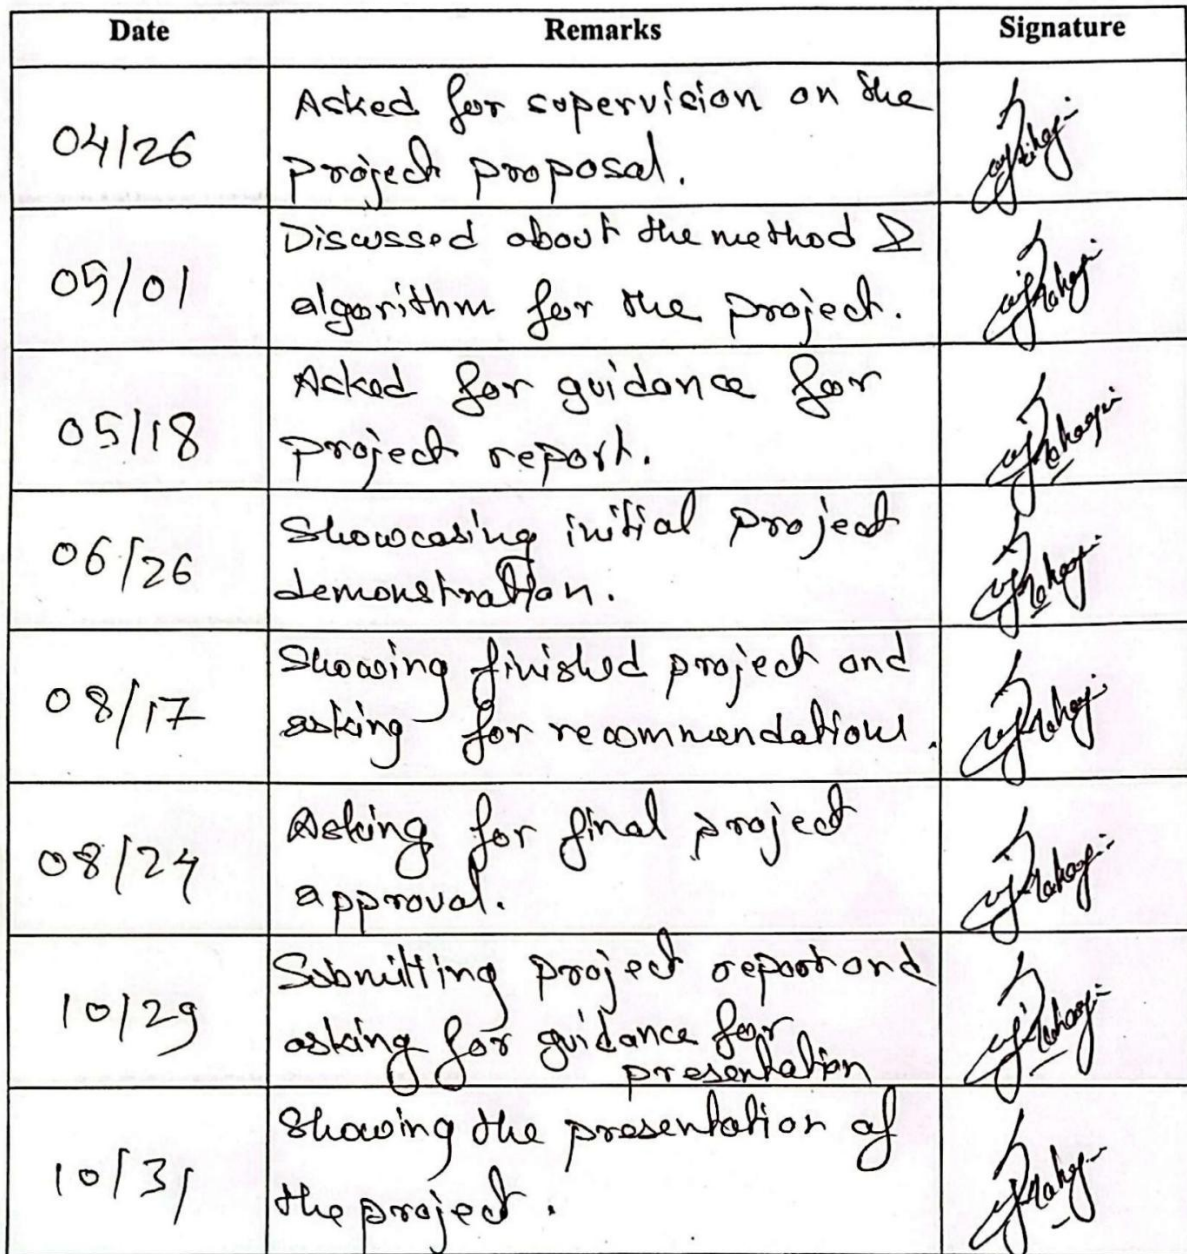 Date Remarks Signature
04/26
Asked for supervision on the
project proposal.
05/01
Discussed about the method &
algorithm for the project.
05/18
Asked for guidance for
project report.
06/26
Showcasing initial project
demonstration.
08/17
Showing finished project and
asking for recommendations.
08/24
Asking for final project
approval.
10/29
Submitting project report and
asking for guidance for
presentation
10/31
Showing the presentation of
the project.